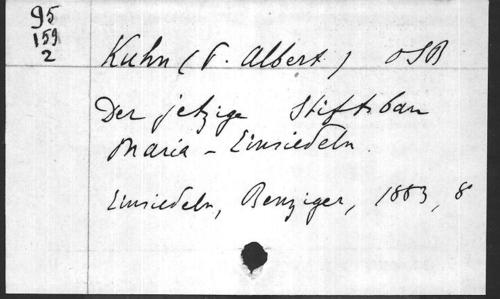 95
159
2
Kuhn (P. Albert) OSB
Der jetzige Stiftsbau
Maria - Einsiedeln.
Einsiedeln, Benziger, 1883, 8°